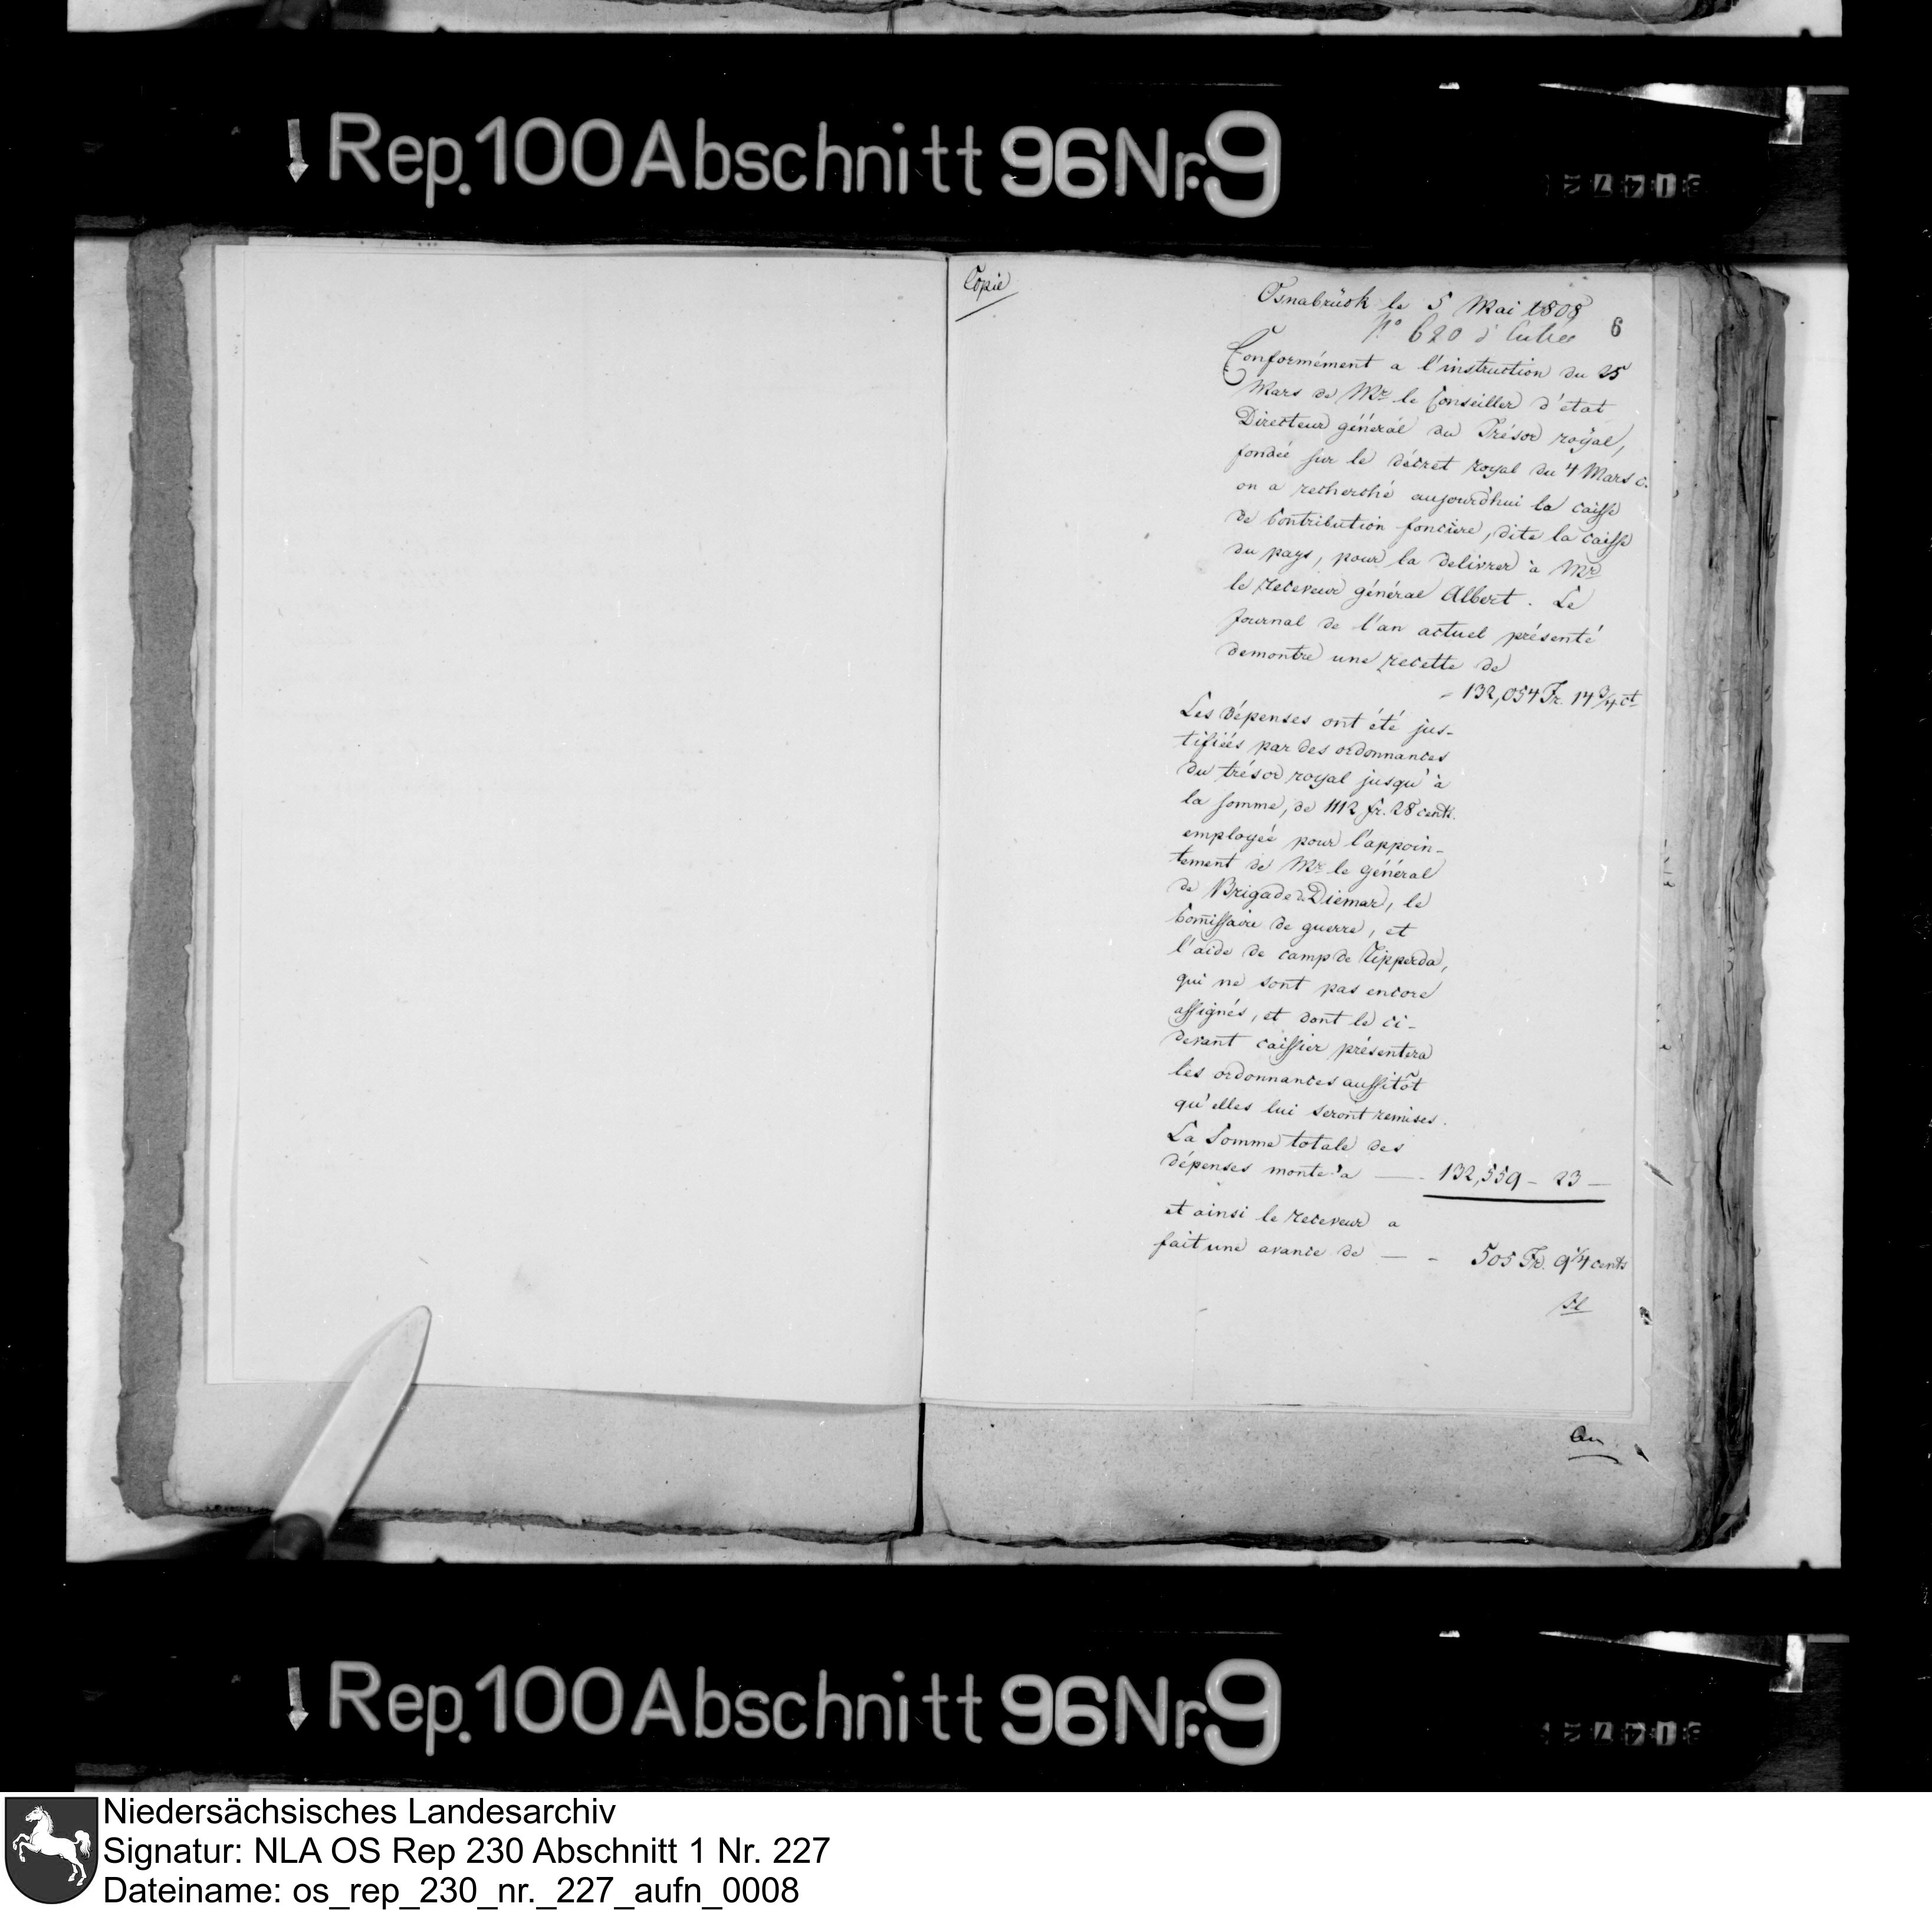 Rep. 100 Abschnitt 96 Nr. 9
Copie
Osnabrück le 5 Mai 1808
6
N° 620
Conformément a l'instruction du 25
Mars de Mr. le Conseiller d'état
Directeur général du Trésor royal,
fondée sur le décret royal du 4 Mars c.
on a recherché aujourd'hui la caisse
de Contribution fonciere, dite la caisse
du pays, pour la delivrer à Mr.
le Receveur général Albert. Le
Journal de l'an actuel présenté
demontre une recette de
- 132,054 Fr. 14 3/4 ct
Les Dépenses ont été jus-
tifiées par des ordonnances
du trésor royal jusqu'à
la somme, de 1112 fr. 28 cents.
employée pour l'appoin-
tement de Mr. le général
de Brigade de Diemar, le
Com̄issaire de guerre, et
l'aide de camp de Ripperda,
qui ne sont pas encore
assignés, et dont le ci-
devant caissier présentera
les ordonnances aussitôt
qu'elles lui seront remises.
La Somme totale des
dépenses monte à — - 132,559 - 23 —
et ainsi le receveur a
fait une avance de — - 505 Fr. 9 1/4 cents
Rep. 100 Abschnitt 96 Nr. 9
Niedersächsisches Landesarchiv
Signatur: NLA OS Rep 230 Abschnitt 1 Nr. 227
Dateiname: os_rep_230_nr._227_aufn_0008